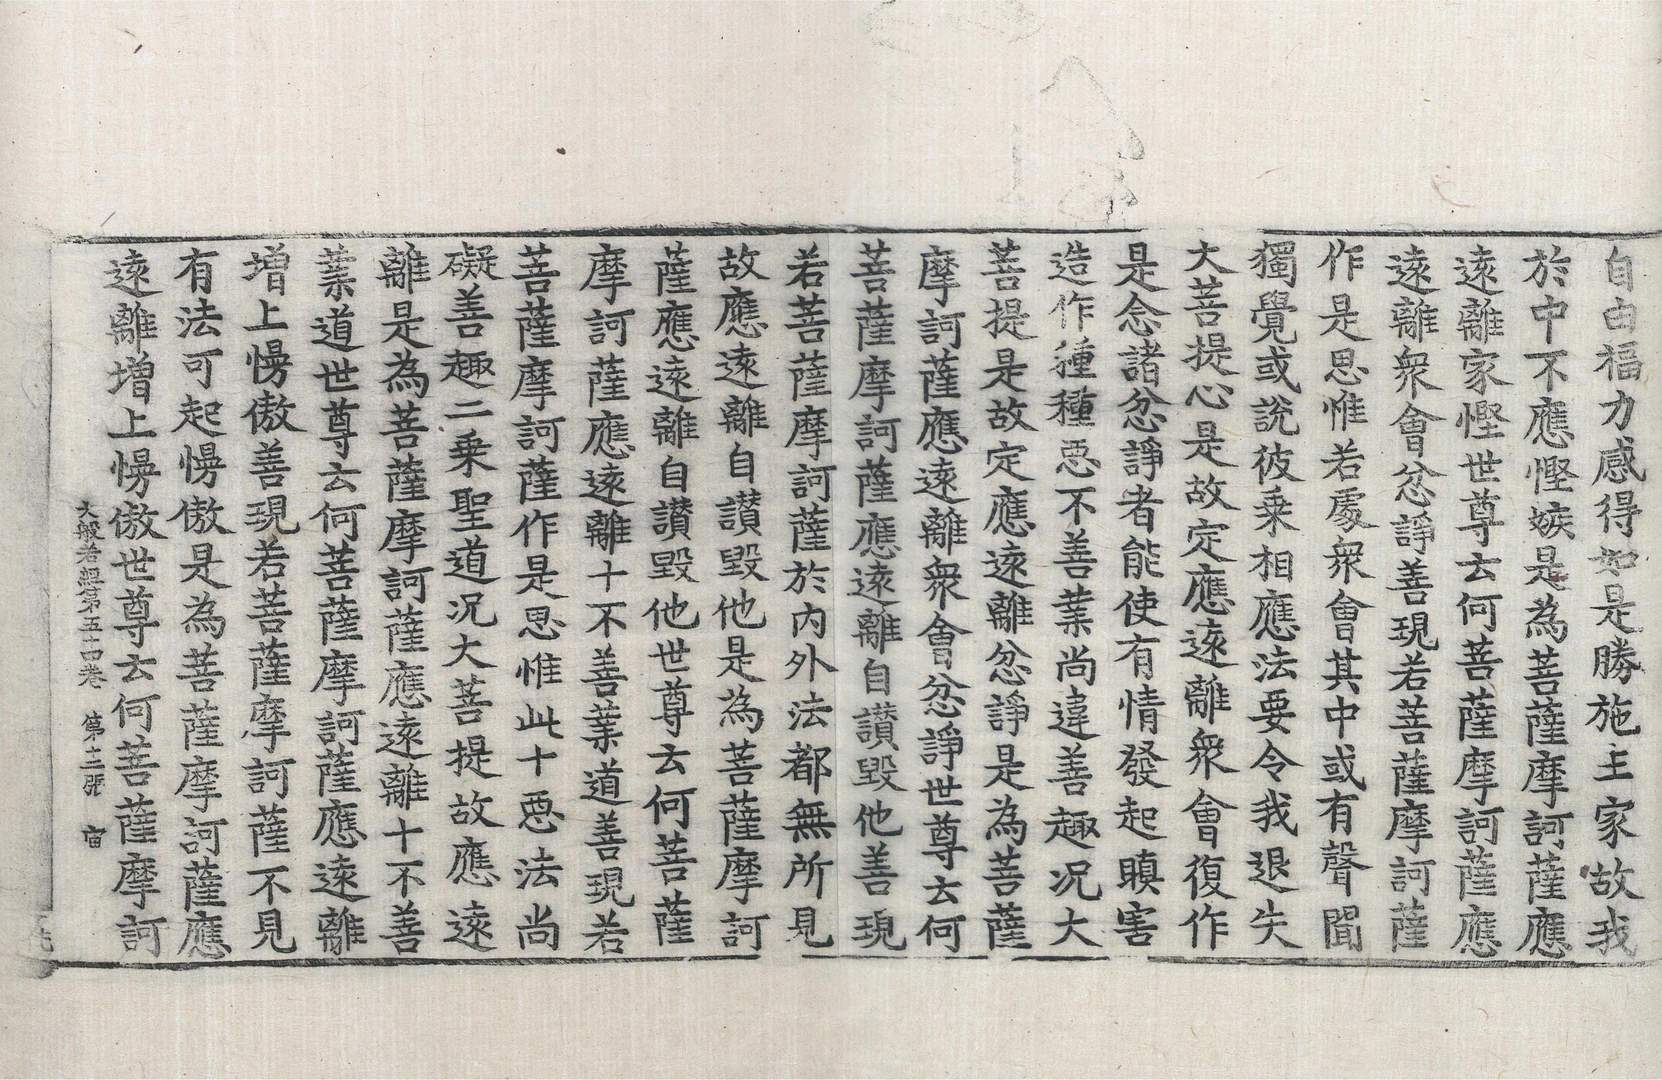 自由福力感得如是勝施主家故我
於中不應慳嫉是為菩薩摩訶薩應
遠離家慳世尊云何菩薩摩訶薩應
遠離衆會忿諍善現若菩薩摩訶薩
作是思惟若處衆會其中或有聲聞
獨覺或說彼乗相應法要令我退失
大菩提心是故定應遠離衆會復作
是念諸忿諍者能使有情發起瞋害
造作種種惡不善業尚違善趣况大
菩提是故定應遠離忿諍是為菩薩
摩訶薩應遠離衆會忿諍世尊云何
菩薩摩訶薩應遠離自讃毀他善現
若菩薩摩訶薩於内外法都無所見
故應遠離自讃毀他是為菩薩摩訶
薩應遠離自讃毀他世尊云何菩薩
摩訶薩應遠離十不善業道善現若
菩薩摩訶薩作是思惟此十惡法尚
礙善趣二乗聖道况大菩提故應遠
離是為菩薩摩訶薩應遠離十不善
業道世尊云何菩薩摩訶薩應遠離
增上慢傲善現若菩薩摩訶薩不見
有法可起慢傲是為菩薩摩訶薩應
遠離增上慢傲世尊云何菩薩摩訶
大般若經第五十四卷 第十二張 宙